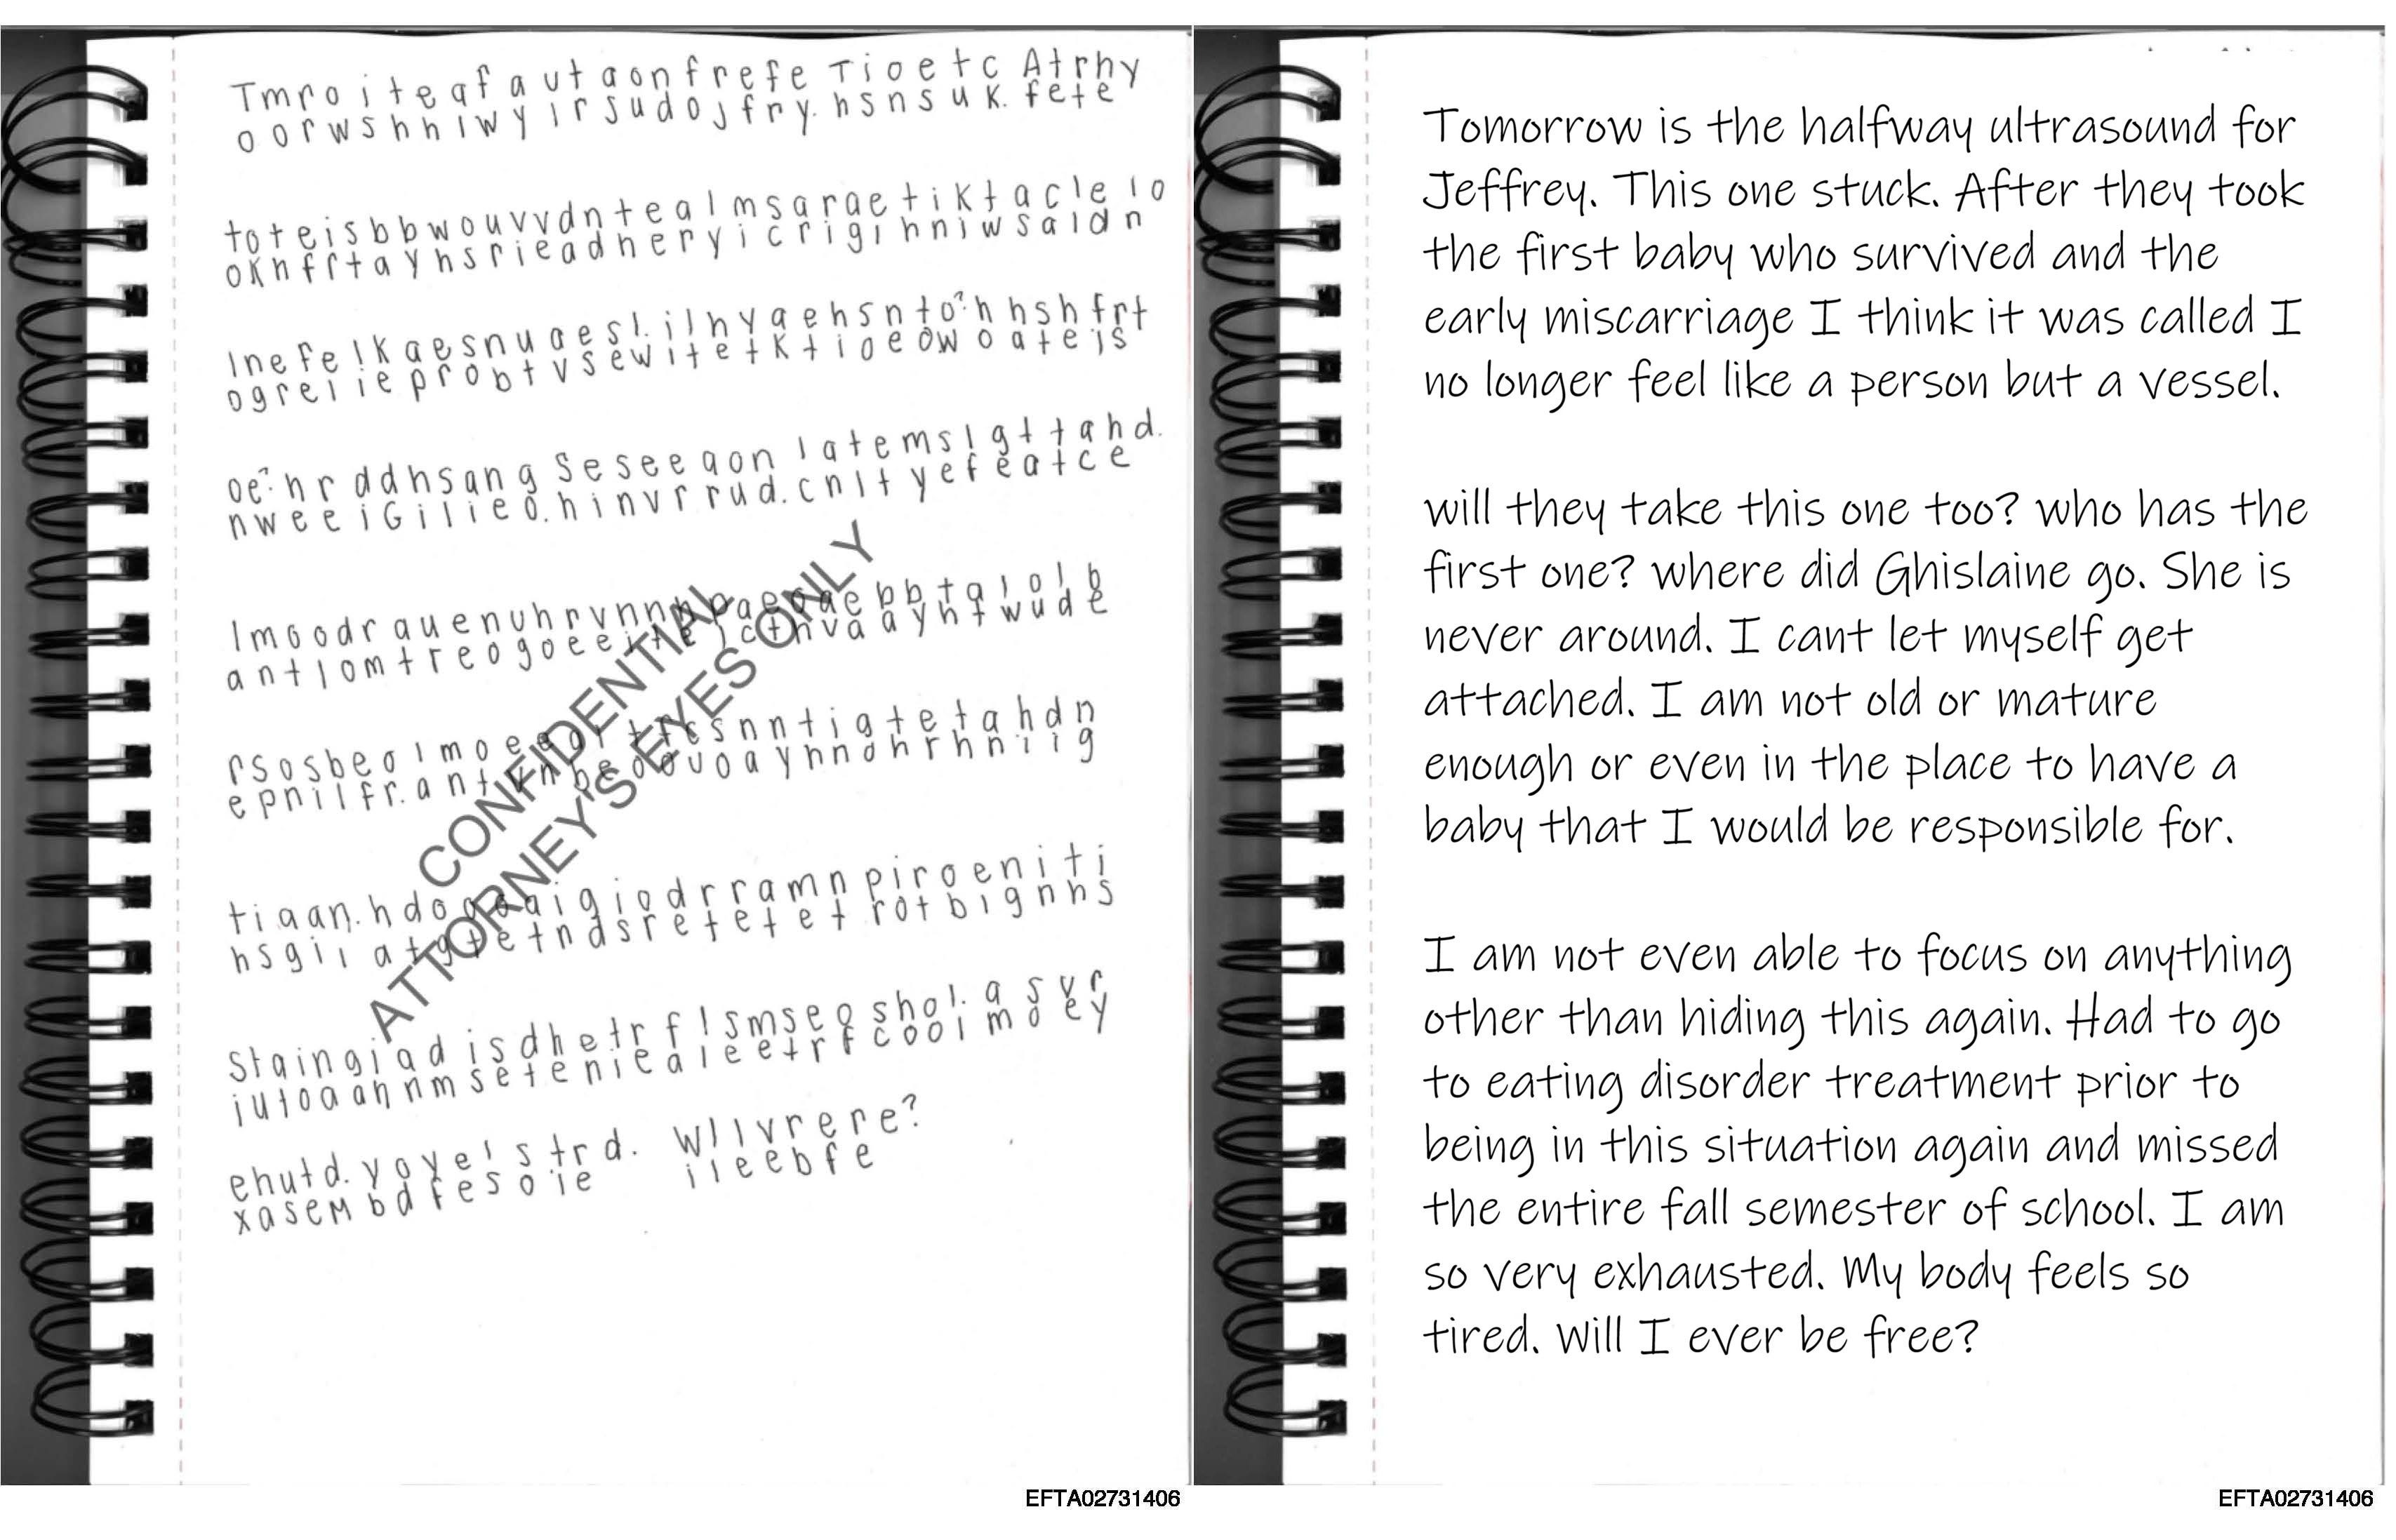 T m r o i t e a f a u t a o n f r e f e T i o e t c A t r h y
o o r w s h h l w y l r s u d o J f r y. h s n s u k. f e t e
t o t e i s b b w o u v v d n t e a l m s a r a e t i K t a c l e I o
o K h f r t a y h s r i e a d h e r y i c r i g I h n i w s a l d n
l n e f e l K a e s n u a e s l. i l h y a e h s n t o? h h s h f r t
o g r e l i e p r o b t v s e w l t e t K t i o e o w o a t e i s
o e? h r d d h s a n g S e s e e a o n I a t e m s l g t t a h d.
n w e e i G i l i e o. h i n v r r u d. c n l t y e f e a t c e
I m o o d r a u e n u h r v n n h p a e o a e b b t a I o l b
a n t l o m t r e o g o e e i t e l c t h v a a y h t w u d e
r s o s b e o I m o e e a l t f c s n n t i g t e t a h d n
e p n i l f r. a n t v n b e o o u o a y h n o h r h n i i g
t i a a n. h d o o a i g i o d r r a m n p i r o e n i t i
h s g i i a t g t e t n d s r e t e t e t r o t b i g n h s
S t a i n g i a d i s d h e t r f l s m s e o s h o l. a s v r
i u t o a a n n m s e t e n i e a l e e t r f c o o I m o e y
e h u t d. y o y e l s t r d. W l I v r e r e?
x a s e M b d f e s o i e i l e e b f e
CONFIDENTIAL
ATTORNEY'S EYES ONLY
EFTA02731406
Tomorrow is the halfway ultrasound for
Jeffrey. This one stuck. After they took
the first baby who survived and the
early miscarriage I think it was called I
no longer feel like a person but a vessel.
will they take this one too? who has the
first one? where did Ghislaine go. She is
never around. I cant let myself get
attached. I am not old or mature
enough or even in the place to have a
baby that I would be responsible for.
I am not even able to focus on anything
other than hiding this again. Had to go
to eating disorder treatment prior to
being in this situation again and missed
the entire fall semester of school. I am
so very exhausted. My body feels so
tired. Will I ever be free?
EFTA02731406